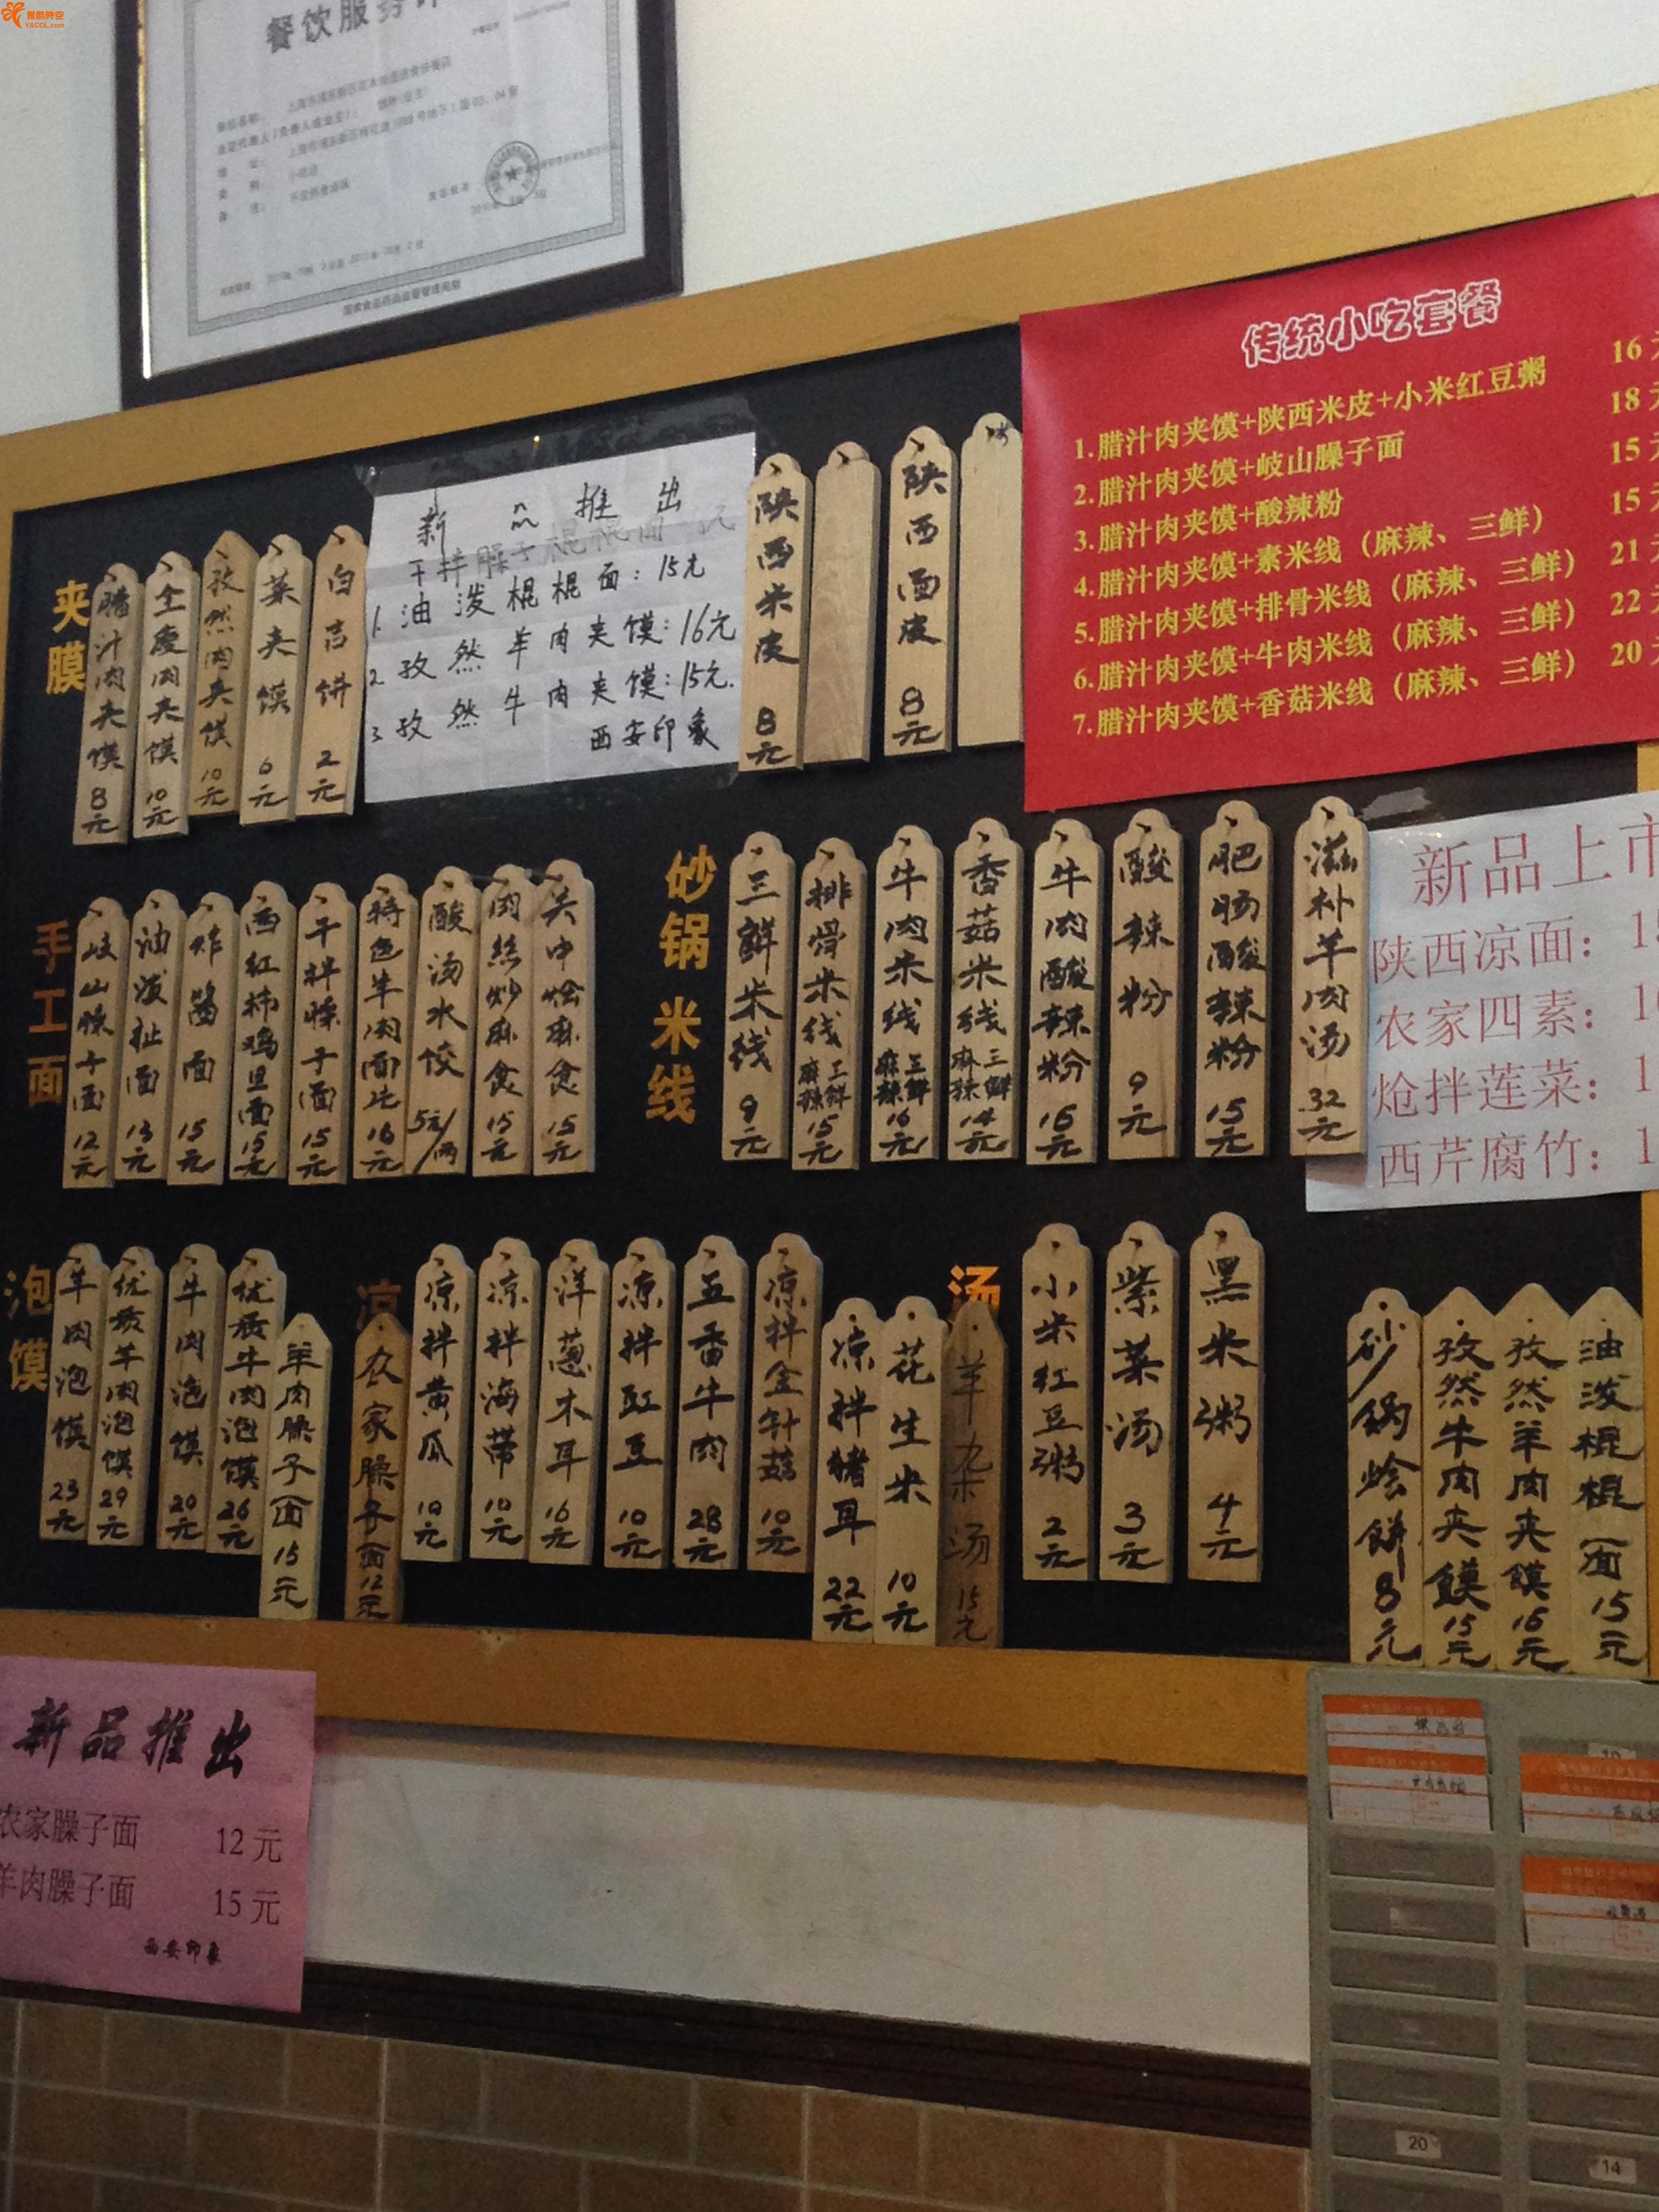 雅酷時空
YACOL.com
餐饮服务
国家食品药品监督管理局制
传统小吃套餐
1.腊汁肉夹馍+陕西米皮+小米红豆粥 16元
2.腊汁肉夹馍+岐山臊子面 18元
3.腊汁肉夹馍+酸辣粉 15元
4.腊汁肉夹馍+素米线（麻辣、三鲜） 15元
5.腊汁肉夹馍+排骨米线（麻辣、三鲜） 21元
6.腊汁肉夹馍+牛肉米线（麻辣、三鲜） 22元
7.腊汁肉夹馍+香菇米线（麻辣、三鲜） 20元
夹膜
腊汁肉夹馍 8元
全瘦肉夹馍 10元
孜然肉夹馍 10元
菜夹馍 6元
白吉饼 2元
新品推出
干拌臊子棍棍面
1.油泼棍棍面：15元
2.孜然羊肉夹馍：16元
3.孜然牛肉夹馍：15元.
西安印象
陕西米皮 8元
陕西面皮 8元
手工面
岐山臊子面 12元
油泼扯面 13元
炸酱面 15元
西红柿鸡旦面 15元
干拌臊子面 15元
特色羊肉面片 16元
酸汤水饺 5元/两
肉丝炒麻食 15元
关中烩麻食 15元
砂锅米线
三鲜米线 9元
排骨米线 麻辣 三鲜 15元
牛肉米线 麻辣 三鲜 16元
香菇米线 麻辣 三鲜 14元
牛肉酸辣粉 16元
酸辣粉 9元
肥肠酸辣粉 15元
滋补羊肉汤 32元
新品上市
陕西凉面：
农家四素：
炝拌莲菜：
西芹腐竹：
泡馍
羊肉泡馍 23元
优质羊肉泡馍 29元
牛肉泡馍 20元
优质牛肉泡馍 26元
羊肉臊子面 15元
凉
农家臊子面 12元
凉拌黄瓜 10元
凉拌海带 10元
洋葱木耳 16元
凉拌豇豆 10元
五香牛肉 28元
凉拌金针菇 10元
凉拌猪耳 22元
花生米 10元
汤
羊杂汤 15元
小米红豆粥 2元
紫菜汤 3元
黑米粥 4元
砂锅烩饼 8元
孜然牛肉夹馍 15元
孜然羊肉夹馍 16元
油泼棍棍面 15元
新品推出
农家臊子面 12元
羊肉臊子面 15元
西安印象
20
14